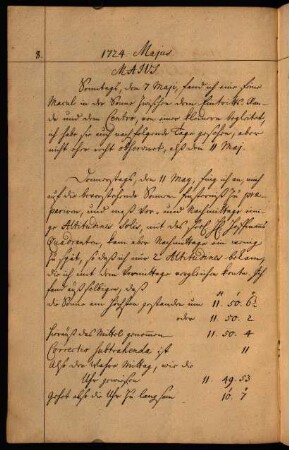 8. 1724 Majus.
MAIUS.
Sonntags, den 7 Maji, fand ich eine
Macul in der Sonne zwischen dem
de und dem Centro, von einer kleinern begleitet,
ich habe sie auch nachfolgende Tage gesehen, aber
nicht ehe recht observirt, alß den 11 Maj.
Donnerstags, den 11 Maj, fing ich an, mich
auf die bevorstehende Sonnen Finsternuß zu præ-
pariren, und maß Vor- und Nachmittags eini-
ge Altitudines Solis, mit des
Quadranten, kam aber Nachmittags ein wenig
zu spät, so daß ich nur 2 Altitudines bekam,
die ich mit dem Vormittage vergleichen konte. Ich
fand auß selbigen, daß
die Sonne am höchsten gestanden um 11. 50. 6
oder 11. 50. 2
hierauß das Mittel genommen 11. 50. 4
Correctio subtrahenda ist 11
Alß der wahre Mittag, wie die
Uhr gewiesen 11. 49. 53
Gehet also die Uhr zu langsam 10. 7